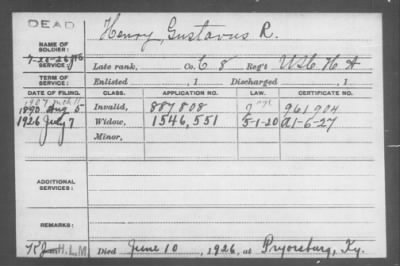 DEAD
Henry, Gustavus R.
NAME OF SOLDIER:
SERVICE: Late rank, Co. C 8 Reg't U.S.C. H A
TERM OF SERVICE: Enlisted , 1 Discharged , 1
DATE OF FILING. CLASS. APPLICATION NO. LAW. CERTIFICATE NO.
1907
1890 Aug 5 Invalid, 887,808 961,904
1926 July 7 Widow, 1546,551 5-1-20 A1-6-27
Minor,
ADDITIONAL SERVICES:
REMARKS:
H.L.M. Died June 10 , 1926, at Pryorsburg, Ky.